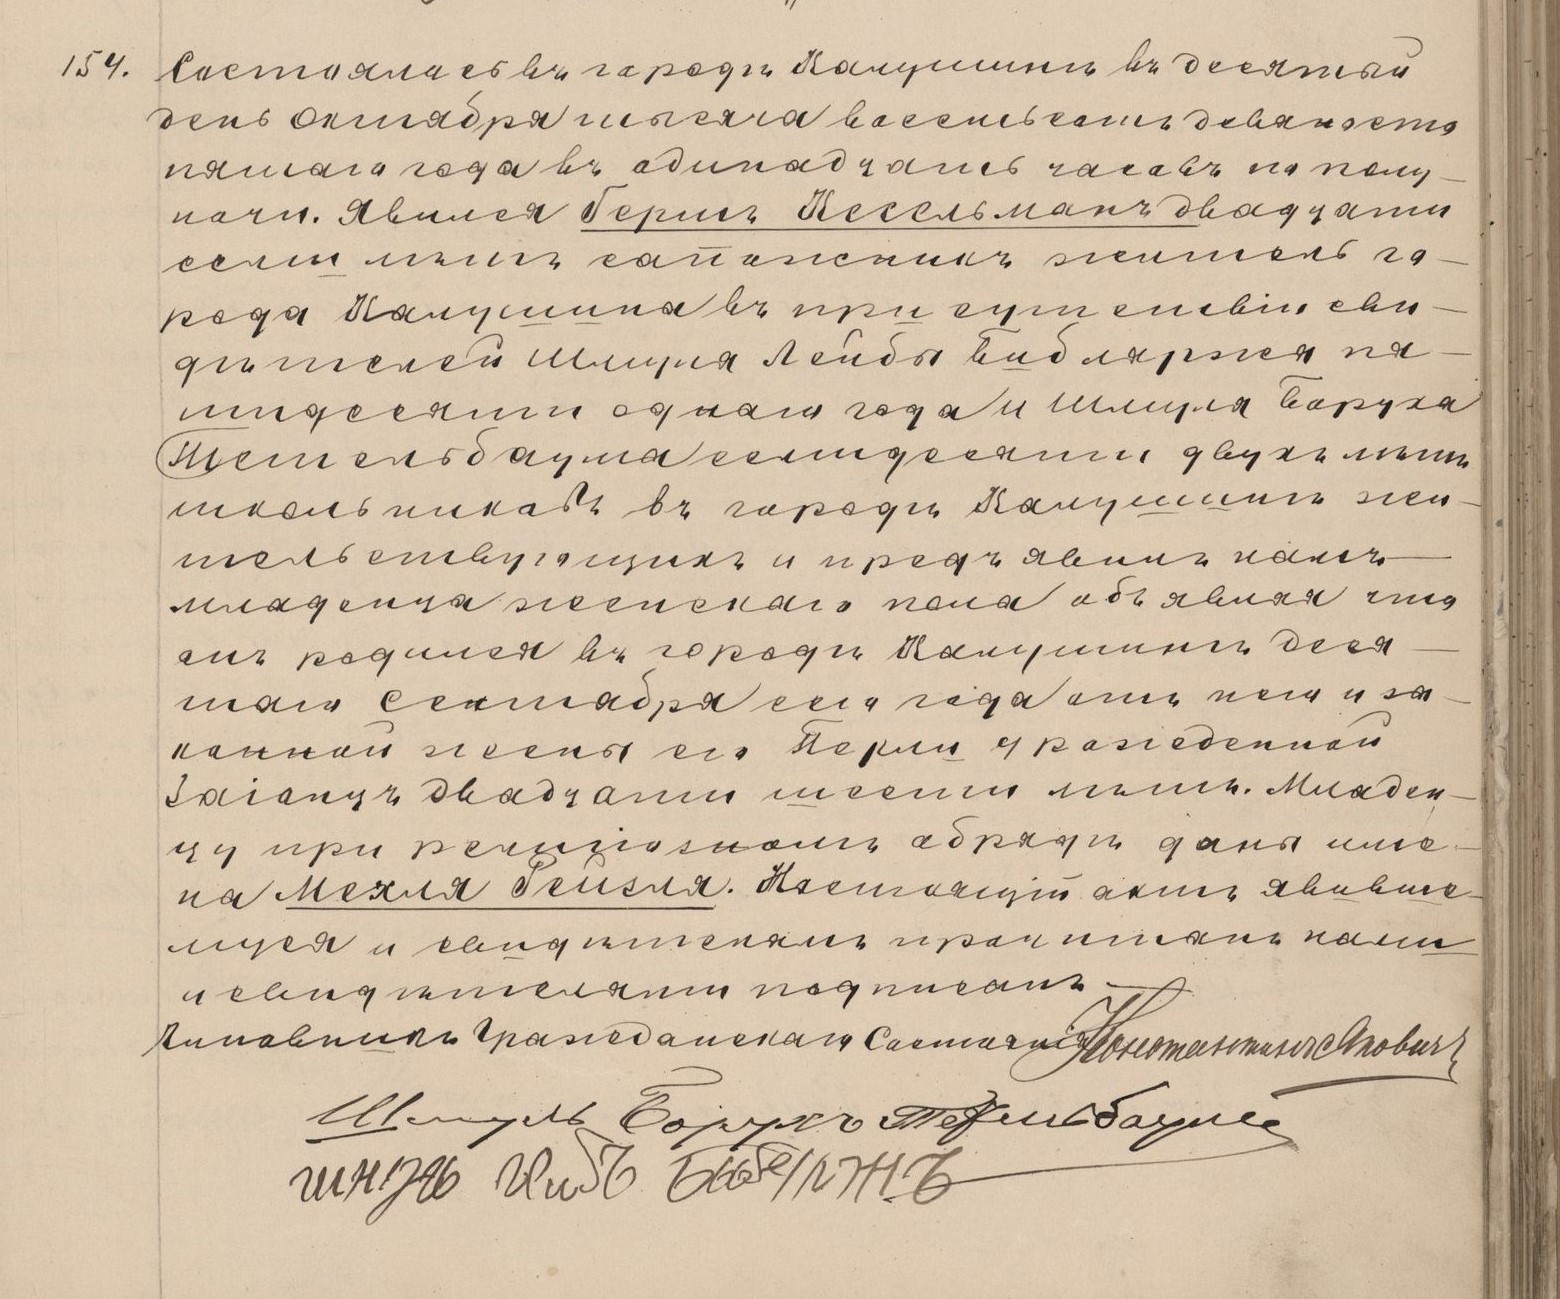 154. Состоялось въ городѣ Калушинѣ въ десятый
день Октября тысяча восемьсотъ девяносто
пятаго года въ одинадцать часовъ по полу-
ночи. Явился Гершъ Кесельманъ двадцати
семи лѣтъ сапожникъ житель го-
рода Калушина въ присутствіи сви-
дѣтелей Шмуля Лейбы Библяржа пя-
тидесяти одного года и Шмуля Боруха
Тетельбаума семидесяти двухъ лѣтъ
школьниковъ въ городѣ Калушинѣ жи-
тельствующихъ и предъявилъ намъ
младенца женскаго пола объявляя что
онъ родился въ городѣ Калушинѣ деся-
таго Сентября сего года отъ него и за-
конной жены его Перли урожденной
Заіонцъ двадцати шести лѣтъ. Младен-
цу при религіозномъ обрядѣ даны име-
на Мехля Рейзля. Настоящій актъ явивше-
муся и свидѣтелямъ прочитанъ нами
и свидѣтелями подписанъ
Чиновникъ Гражданскаго Состоянія
Шмуль Борухъ Тетельбаумъ